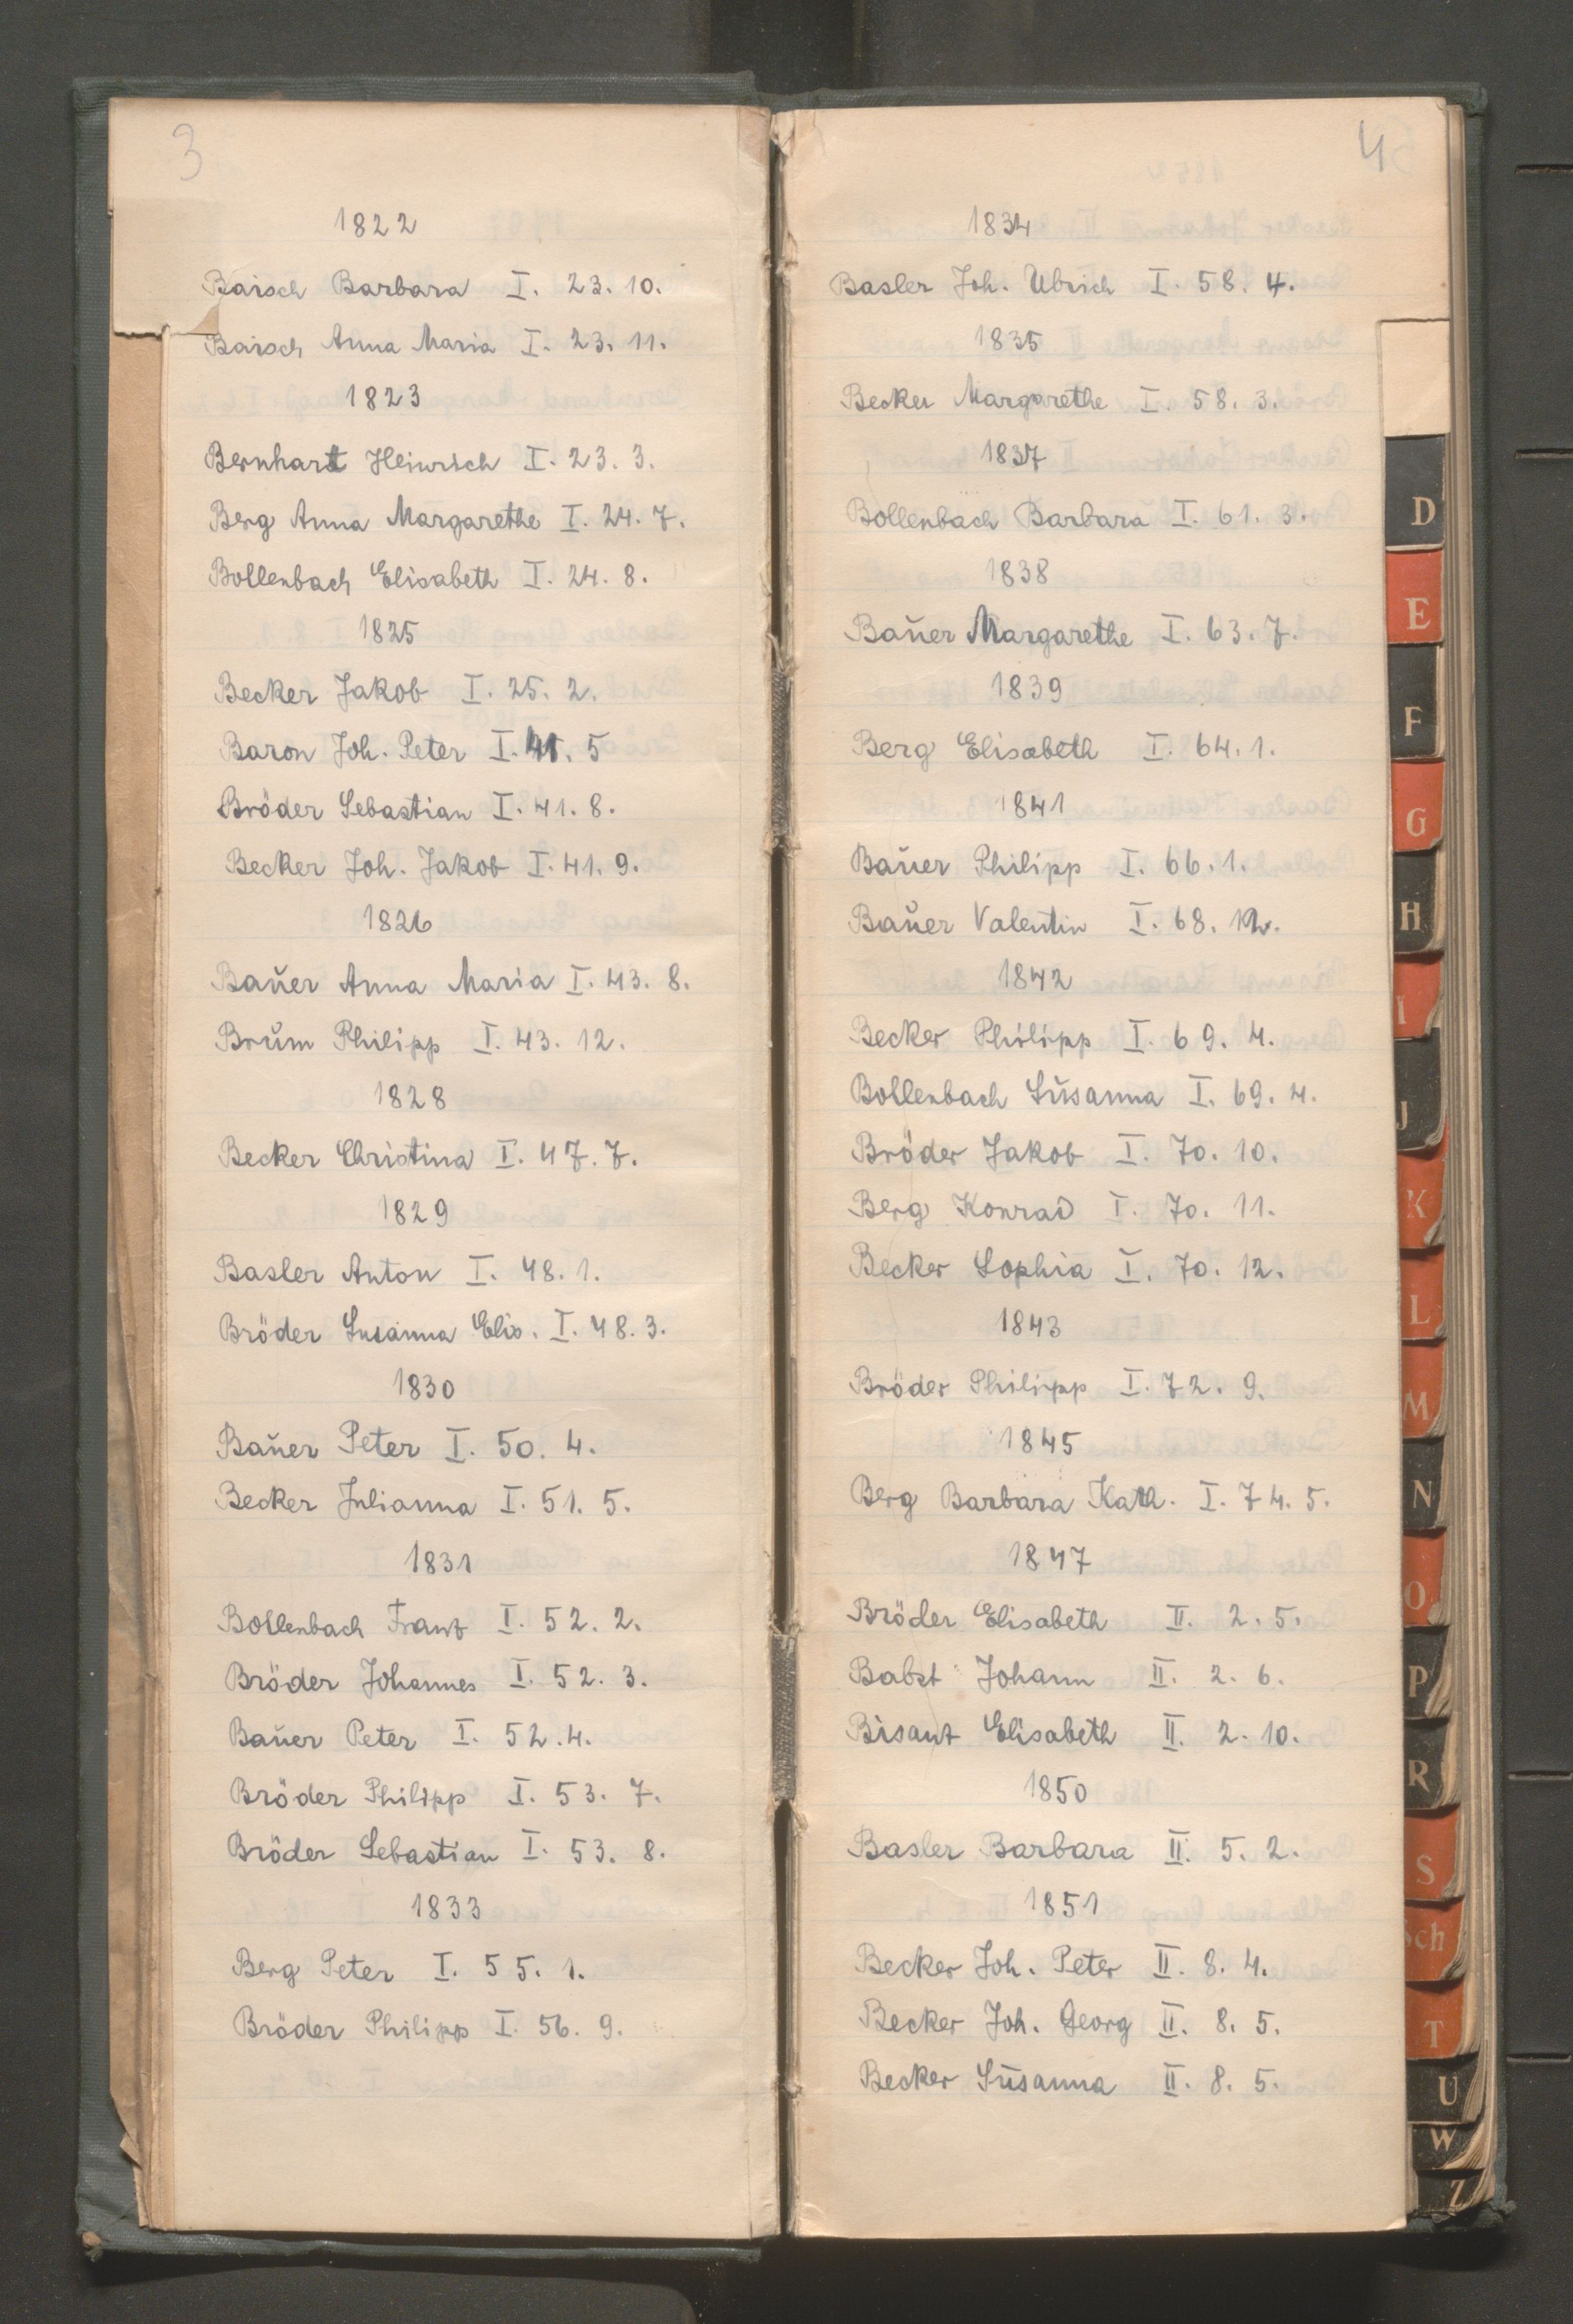 3
1822
Baisch Barbara I. 23. 10.
Baisch Anna Maria I. 23. 11.
1823
Bernhart Heinrich I. 23. 3.
Berg Anna Margarethe I. 24. 7.
Bollenbach Elisabeth I. 24. 8.
1825
Becker Jakob I. 25. 2.
Baron Joh. Peter I. 41. 5
Bröder Sebastian I. 41. 8.
Becker Joh. Jakob I. 41. 9.
1826
Baŭer Anna Maria I. 43. 8.
Brŭm Philipp I. 43. 12.
1828
Becker Christina I. 47. 7.
1829
Basler Anton I. 48. 1.
Bröder Susanna Elis. I. 48. 3.
1830
Baŭer Peter I. 50. 4.
Becker Julianna I. 51. 5.
1831
Bollenbach Franz I. 52. 2.
Bröder Johannes I. 52. 3.
Baŭer Peter I. 52. 4.
Bröder Philipp I. 53. 7.
Bröder Sebastian I. 53. 8.
1833
Berg Peter I. 55. 1.
Bröder Philipp I. 56. 9.
4
1834
Basler Joh. Ulrich I. 58. 4.
1835
Becker Margarethe I. 58. 3.
1837
Bollenbach Barbara I. 61. 3.
1838
Baŭer Margarethe I. 63. 7.
1839
Berg Elisabeth I. 64. 1.
1841
Baŭer Philipp I. 66. 1.
Baŭer Valentin I. 68. 12.
1842
Becker Philipp I. 69. 4.
Bollenbach Sŭsanna I. 69. 4.
Bröder Jakob I. 70. 10.
Berg Konrad I. 70. 11.
Becker Sophia I. 70. 12.
1843
Bröder Philipp I. 72. 9.
1845
Berg Barbara Kath. I. 74. 5.
1847
Bröder Elisabeth II. 2. 5.
Babst Johann II. 2. 6.
Bisant Elisabeth II. 2. 10.
1850
Basler Barbara II. 5. 2.
1851
Becker Joh. Peter II. 8. 4.
Becker Joh. Georg II. 8. 5.
Becker Sŭsanna II. 8. 5.
D
E
F
G
H
I
J
K
L
M
N
O
P
R
S
Sch
T
U
W
Z